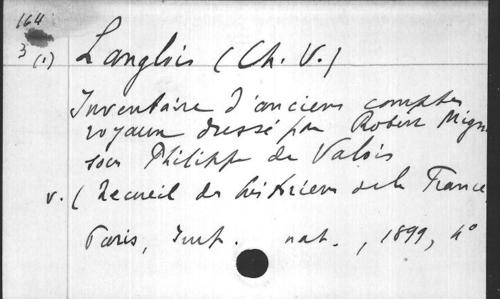 164
3 (1)
Langlois (Ch. V.)
Inventaire d'anciens comptes
royaux dressé par Robert Mign
sous Philippe de Valois
v. (Recueil des historiens de la France
Paris, Imp. nat., 1899, 4°